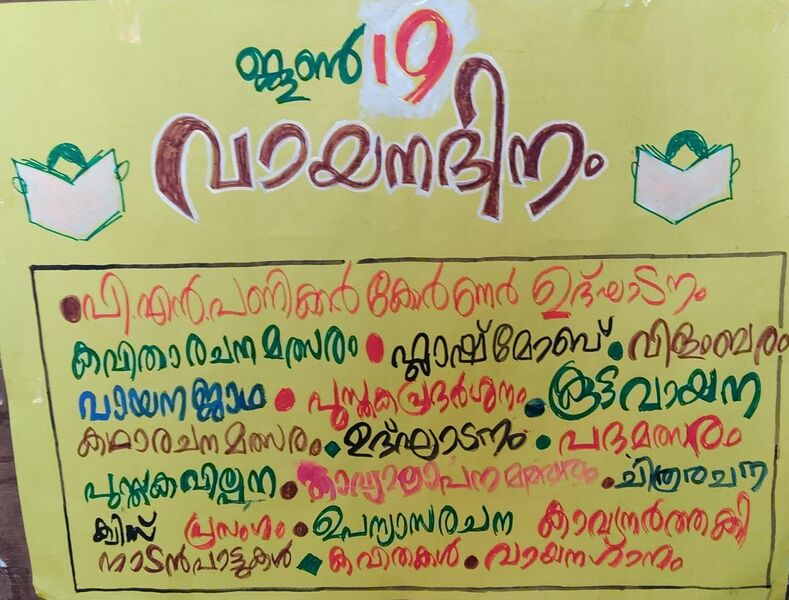 ജൂൺ 19
വായനദിനം
പി.എൻ.പണിക്കർ കോർണർ ഉദ്ഘാടനം
കവിതാരചനമത്സരം ഫ്ലാഷ്മോബ് വിളംബരം
വായനജാഥ പുസ്തകപ്രദർശനം കൂട്ടവായന
കഥാരചനമത്സരം ഉദ്ഘാടനം പദമത്സരം
പുസ്തകവില്പന കാവ്യാലാപനമത്സരം ചിത്രരചന
ക്വിസ് പ്രസംഗം ഉപന്യാസരചന കാവ്യനർത്തകി
നാടൻപാട്ടുകൾ കവിതകൾ വായനഗാനം